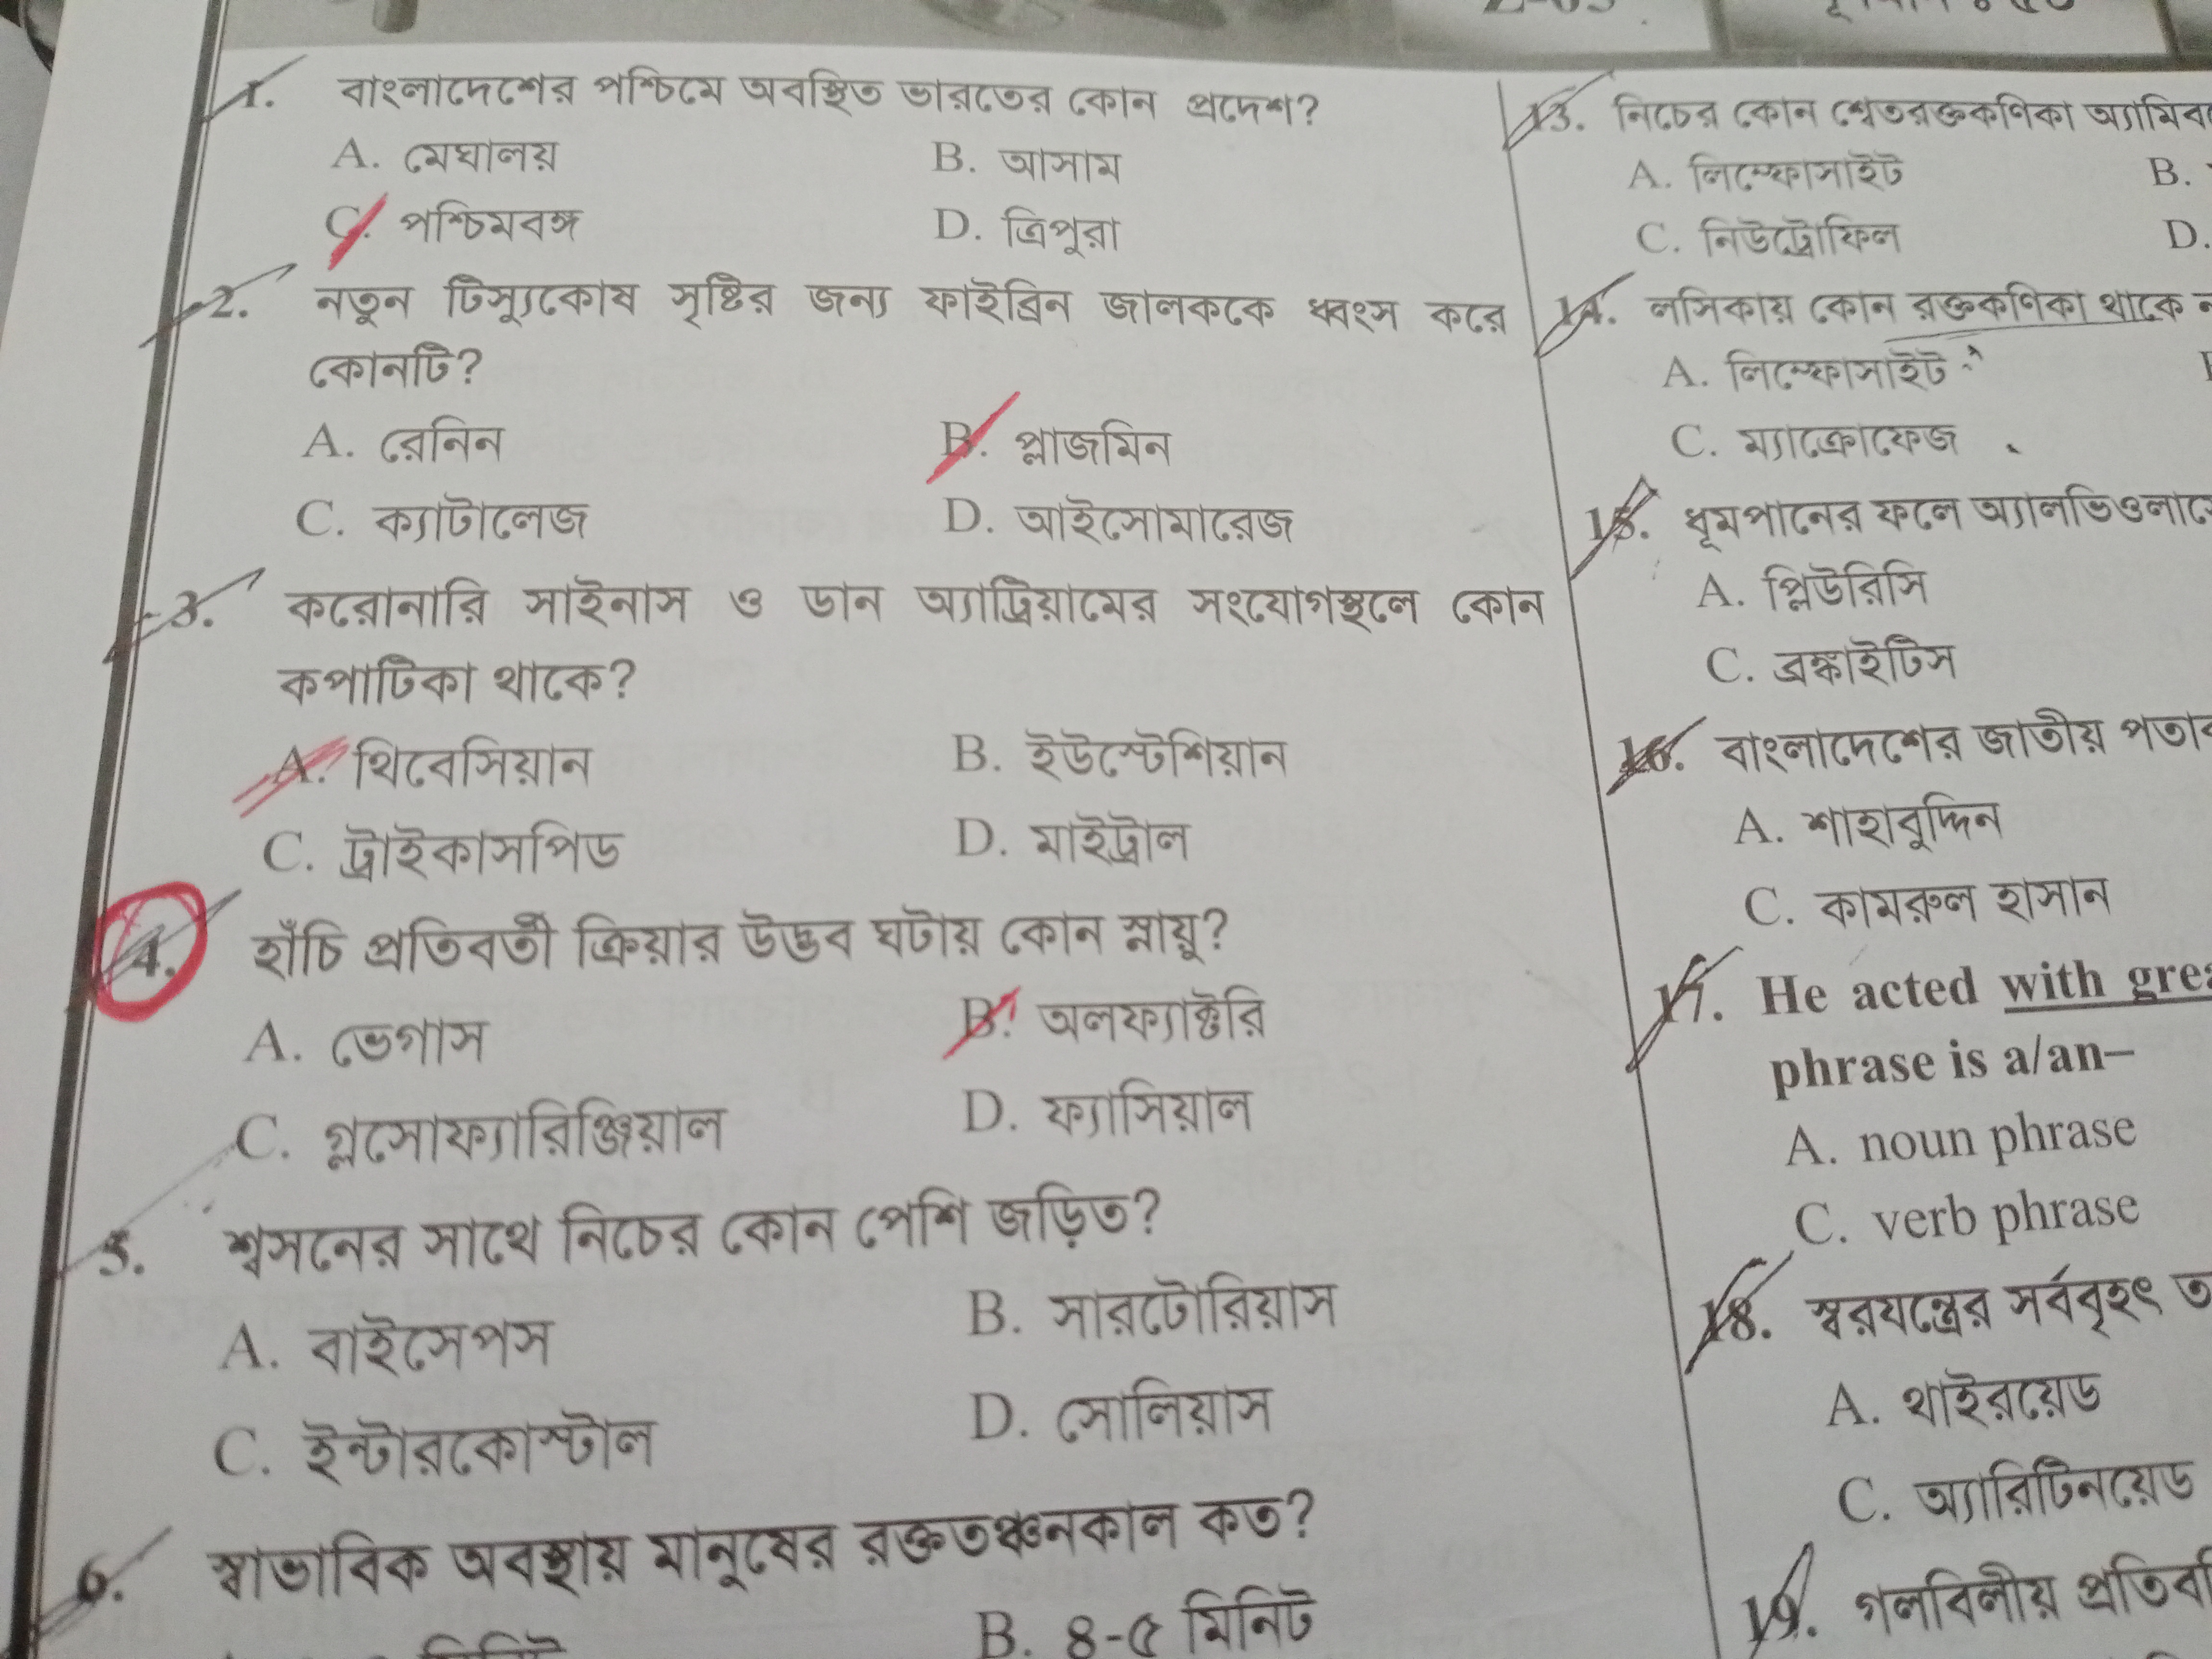 1. বাংলাদেশের পশ্চিমে অবস্থিত ভারতের কোন প্রদেশ?
A. মেঘালয় B. আসাম
C. পশ্চিমবঙ্গ D. ত্রিপুরা
2. নতুন টিস্যুকোষ সৃষ্টির জন্য ফাইব্রিন জালককে ধ্বংস করে
কোনটি?
A. রেনিন B. প্লাজমিন
C. ক্যাটালেজ D. আইসোমারেজ
3. করোনারি সাইনাস ও ডান অ্যাট্রিয়ামের সংযোগস্থলে কোন
কপাটিকা থাকে?
A. থিবেসিয়ান B. ইউস্টেশিয়ান
C. ট্রাইকাসপিড D. মাইট্রাল
4. হাঁচি প্রতিবর্তী ক্রিয়ার উদ্ভব ঘটায় কোন স্নায়ু?
A. ভেগাস B. অলফ্যাক্টরি
C. গ্লসোফ্যারিঞ্জিয়াল D. ফ্যাসিয়াল
5. শ্বসনের সাথে নিচের কোন পেশি জড়িত?
A. বাইসেপস B. সারটোরিয়াস
C. ইন্টারকোস্টাল D. সোলিয়াস
6. স্বাভাবিক অবস্থায় মানুষের রক্ততঞ্চনকাল কত?
B. ৪-৫ মিনিট
13. নিচের কোন শ্বেতরক্তকণিকা
A. লিম্ফোসাইট B.
C. নিউট্রোফিল D.
14. লসিকায় কোন রক্তকণিকা থাকে
A. লিম্ফোসাইট
C. ম্যাক্রোফেজ
15. ধূমপানের ফলে
A. প্লিউরিসি
C. ব্রঙ্কাইটিস
16. বাংলাদেশের জাতীয়
A. শাহাবুদ্দিন
C. কামরুল হাসান
17. He acted with
phrase is a/an–
A. noun phrase
C. verb phrase
18. স্বরযন্ত্রের সর্ববৃহৎ
A. থাইরয়েড
C. অ্যারিটিনয়েড
19. গলবিলীয়